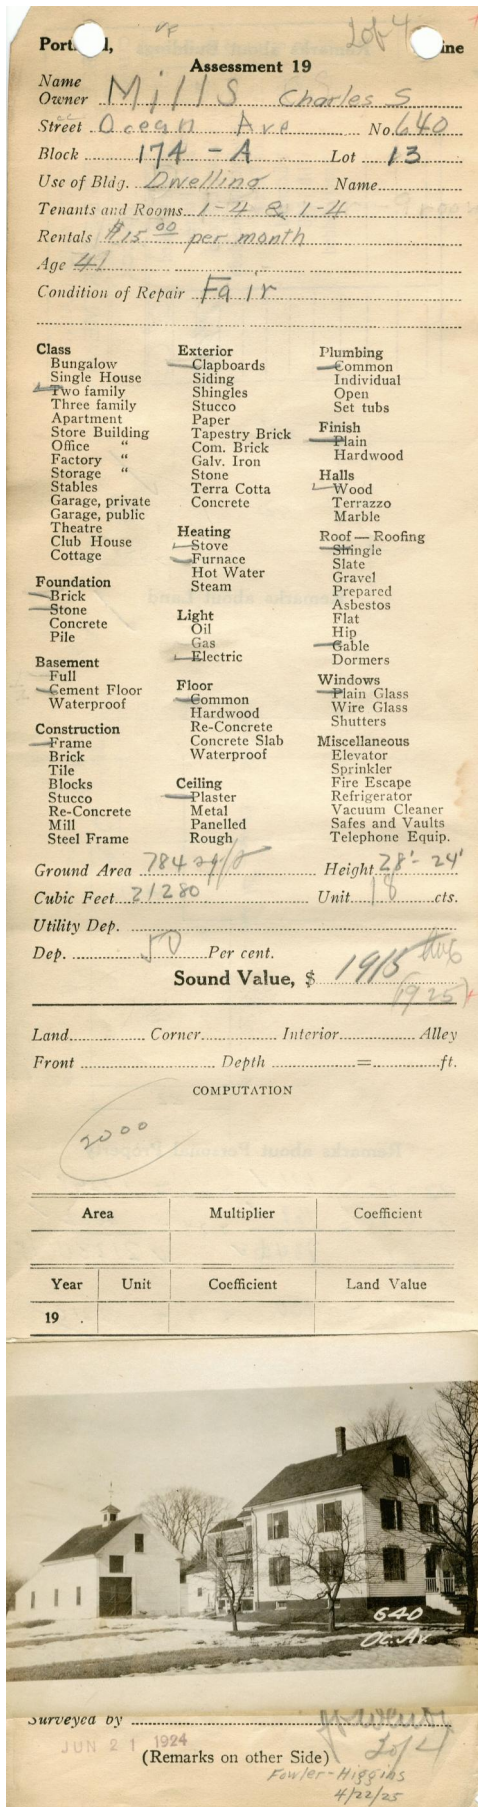 up 2 of 4
Port l, ine
Assessment 19
Name
Owner Mills Charles S
Street Ocean Ave No. 640
Block 174 - A Lot 13
Use of Bldg. Dwelling Name
Tenants and Rooms 1-4 & 1-4
Rentals $15.00 per month
Age 41
Condition of Repair Fair
Class
Bungalow
Single House
Two family
Three family
Apartment
Store Building
Office "
Factory "
Storage "
Stables
Garage, private
Garage, public
Theatre
Club House
Cottage
Foundation
Brick
Stone
Concrete
Pile
Basement
Full
Cement Floor
Waterproof
Construction
Frame
Brick
Tile
Blocks
Stucco
Re-Concrete
Mill
Steel Frame
Exterior
Clapboards
Siding
Shingles
Stucco
Paper
Tapestry Brick
Com. Brick
Galv. Iron
Stone
Terra Cotta
Concrete
Heating
Stove
Furnace
Hot Water
Steam
Light
Oil
Gas
Electric
Floor
Common
Hardwood
Re-Concrete
Concrete Slab
Waterproof
Ceiling
Plaster
Metal
Panelled
Rough
Plumbing
Common
Individual
Open
Set tubs
Finish
Plain
Hardwood
Halls
Wood
Terrazzo
Marble
Roof — Roofing
Shingle
Slate
Gravel
Prepared
Asbestos
Flat
Hip
Gable
Dormers
Windows
Plain Glass
Wire Glass
Shutters
Miscellaneous
Elevator
Sprinkler
Fire Escape
Refrigerator
Vacuum Cleaner
Safes and Vaults
Telephone Equip.
Ground Area 784 sq ft Height 28'- 24'
Cubic Feet 21280 Unit 18 cts.
Utility Dep.
Dep. 50 Per cent.
Sound Value, $ 1915
1925
Land Corner Interior Alley
Front Depth = ft.
COMPUTATION
2000
Area Multiplier Coefficient
Year Unit Coefficient Land Value
19 .
640
Oc. Av.
Surveyed by
JUN 21 1924 2 of 4
(Remarks on other Side)
Fowler-Higgins
4/22/25